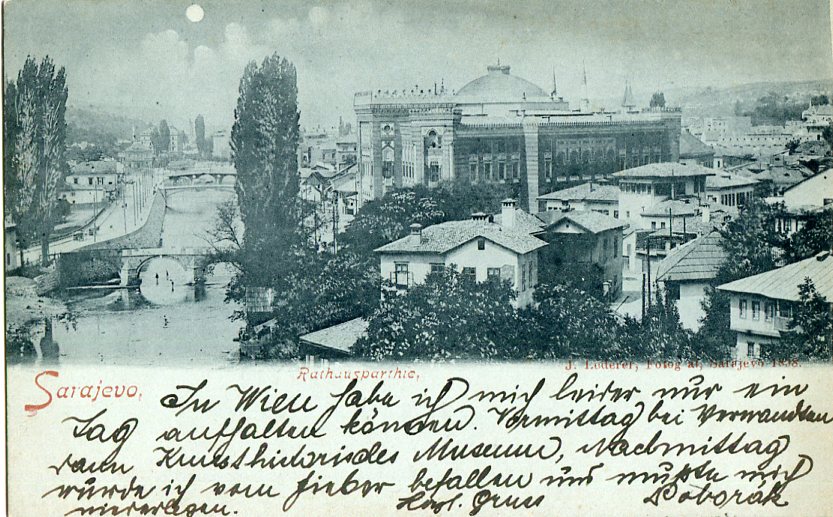 Rathausparthie,
J. Lederer, Fotograf, Sarajevo 1898.
Sarajevo,
In Wien habe ich mich leider nur ein
Tag aufhalten können. Vormittag bei Verwandten
dann Kunsthistorisches Museum, Nachmittag
wurde ich vom Fieber befallen und mußte mich
niederlegen. Herzl. Gruss Doborak